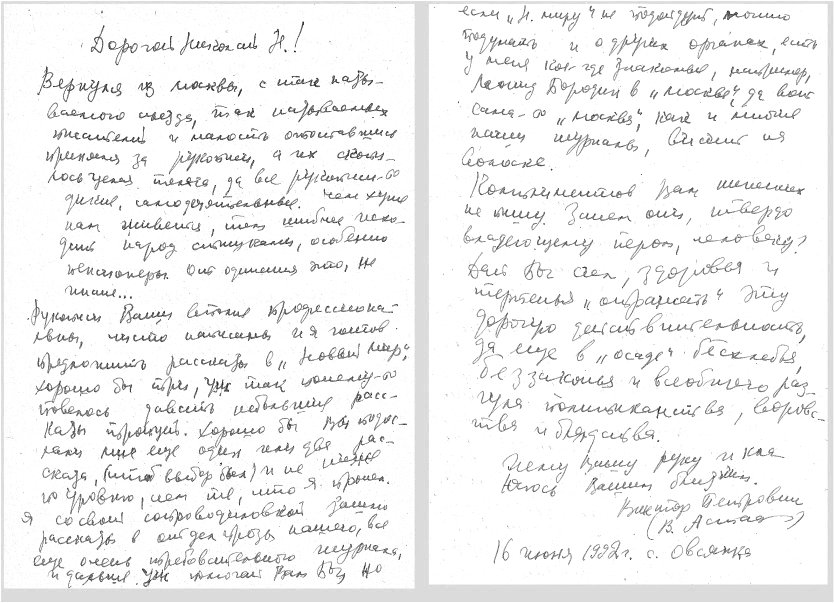 Дорогой Николай Н.!
Вернулся из Москвы, с так назы-
ваемого съезда, так называемых
писателей и малость отоспавшись
принялся за рукописи, а их скопи-
лось целая телега, да все рукописи-то
дикие, самодеятельные. Чем хуже
нам живётся, тем шибче исхо-
дит народ стишками, особенно
пенсионеры. От одичания это, не
иначе...
Рукописи Ваши вполне профессионал
ьны, чисто написаны и я готов
предложить рассказы в "Новый мир",
хорошо бы три, уж так почему-то
повелось давать небольшие расс-
казы троицей. Хорошо бы Вы подос-
лали мне ещё один или два рас-
сказа, (чтоб выбор был) и не ниже
по уровню, чем те, что я прочёл.
Я со своей сопроводиловкой зашлю
рассказы в отдел прозы нашего, всё
ещё очень требовательного журнала,
и дальше уж помогай Вам Бог, но
если "Н. миру" не подойдут, можно
подумать и о других органах, есть
у меня кое-где знакомые, например,
Леонид Бородин в "Москве", да вот
сама-то "Москва", как и многие
наши журналы, висит на
волоске.
Комплиментов Вам никаких
не пишу. Зачем они, твёрдо
владеющему пером, человеку?
Дай Бог сил, здоровья и
терпенья "отражать" эту
дорогую действительность,
да ещё в "осаде" бесхлебья,
беззаконья и всеобщего раз-
гула политиканства, воровс-
тва и блядства.
Жму Вашу руку и кла-
няюсь Вашим близким.
Виктор Петрович
(В. Астафьев)
16 июня 1992г. с. Овсянка